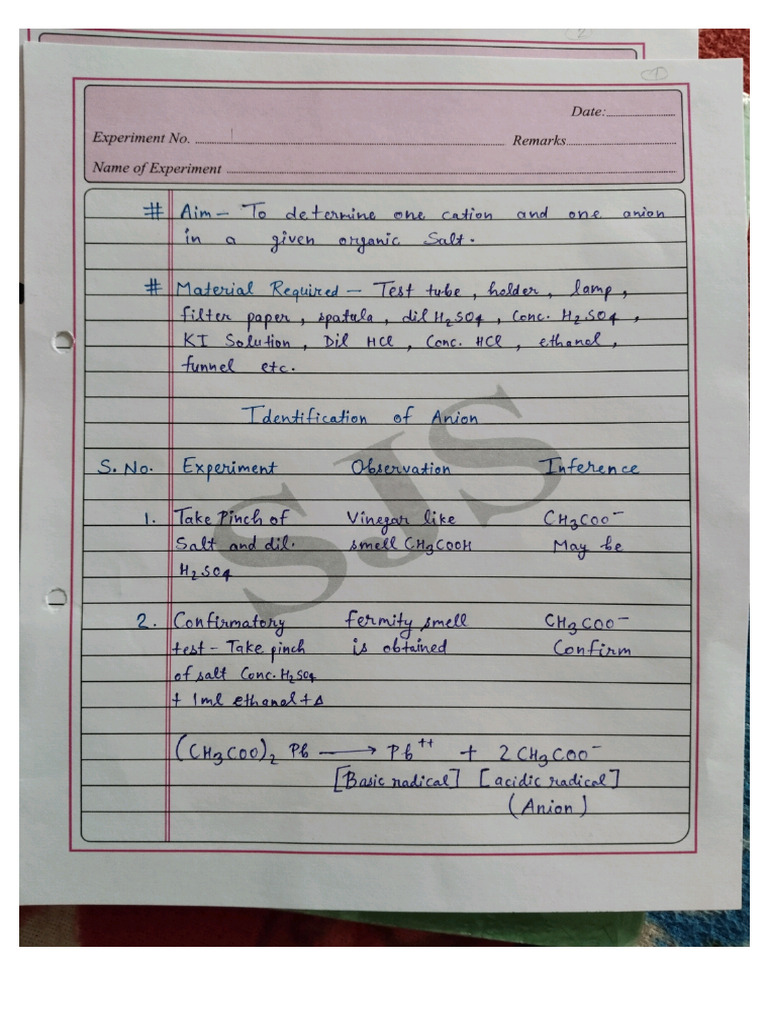 2
1
Date:
Experiment No. 1 Remarks
Name of Experiment
# Aim – To determine one cation and one anion
in a given organic Salt.
# Material Required – Test tube, holder, lamp,
filter paper, spatula, dil H₂SO₄, Conc. H₂SO₄,
KI Solution, Dil HCl, Conc. HCl, ethanol,
funnel etc.
Identification of Anion
S. No. Experiment Observation Inference
1. Take Pinch of Vinegar like CH₃COO⁻
Salt and dil. smell CH₃COOH May be
H₂SO₄
2. Confirmatory fermity smell CH₃COO⁻
test – Take pinch is obtained Confirm
of salt Conc. H₂SO₄
+ 1ml ethanol + Δ
(CH₃COO)₂ Pb ⟶ Pb⁺⁺ + 2 CH₃COO⁻
[Basic radical] [acidic radical]
(Anion)
SJS